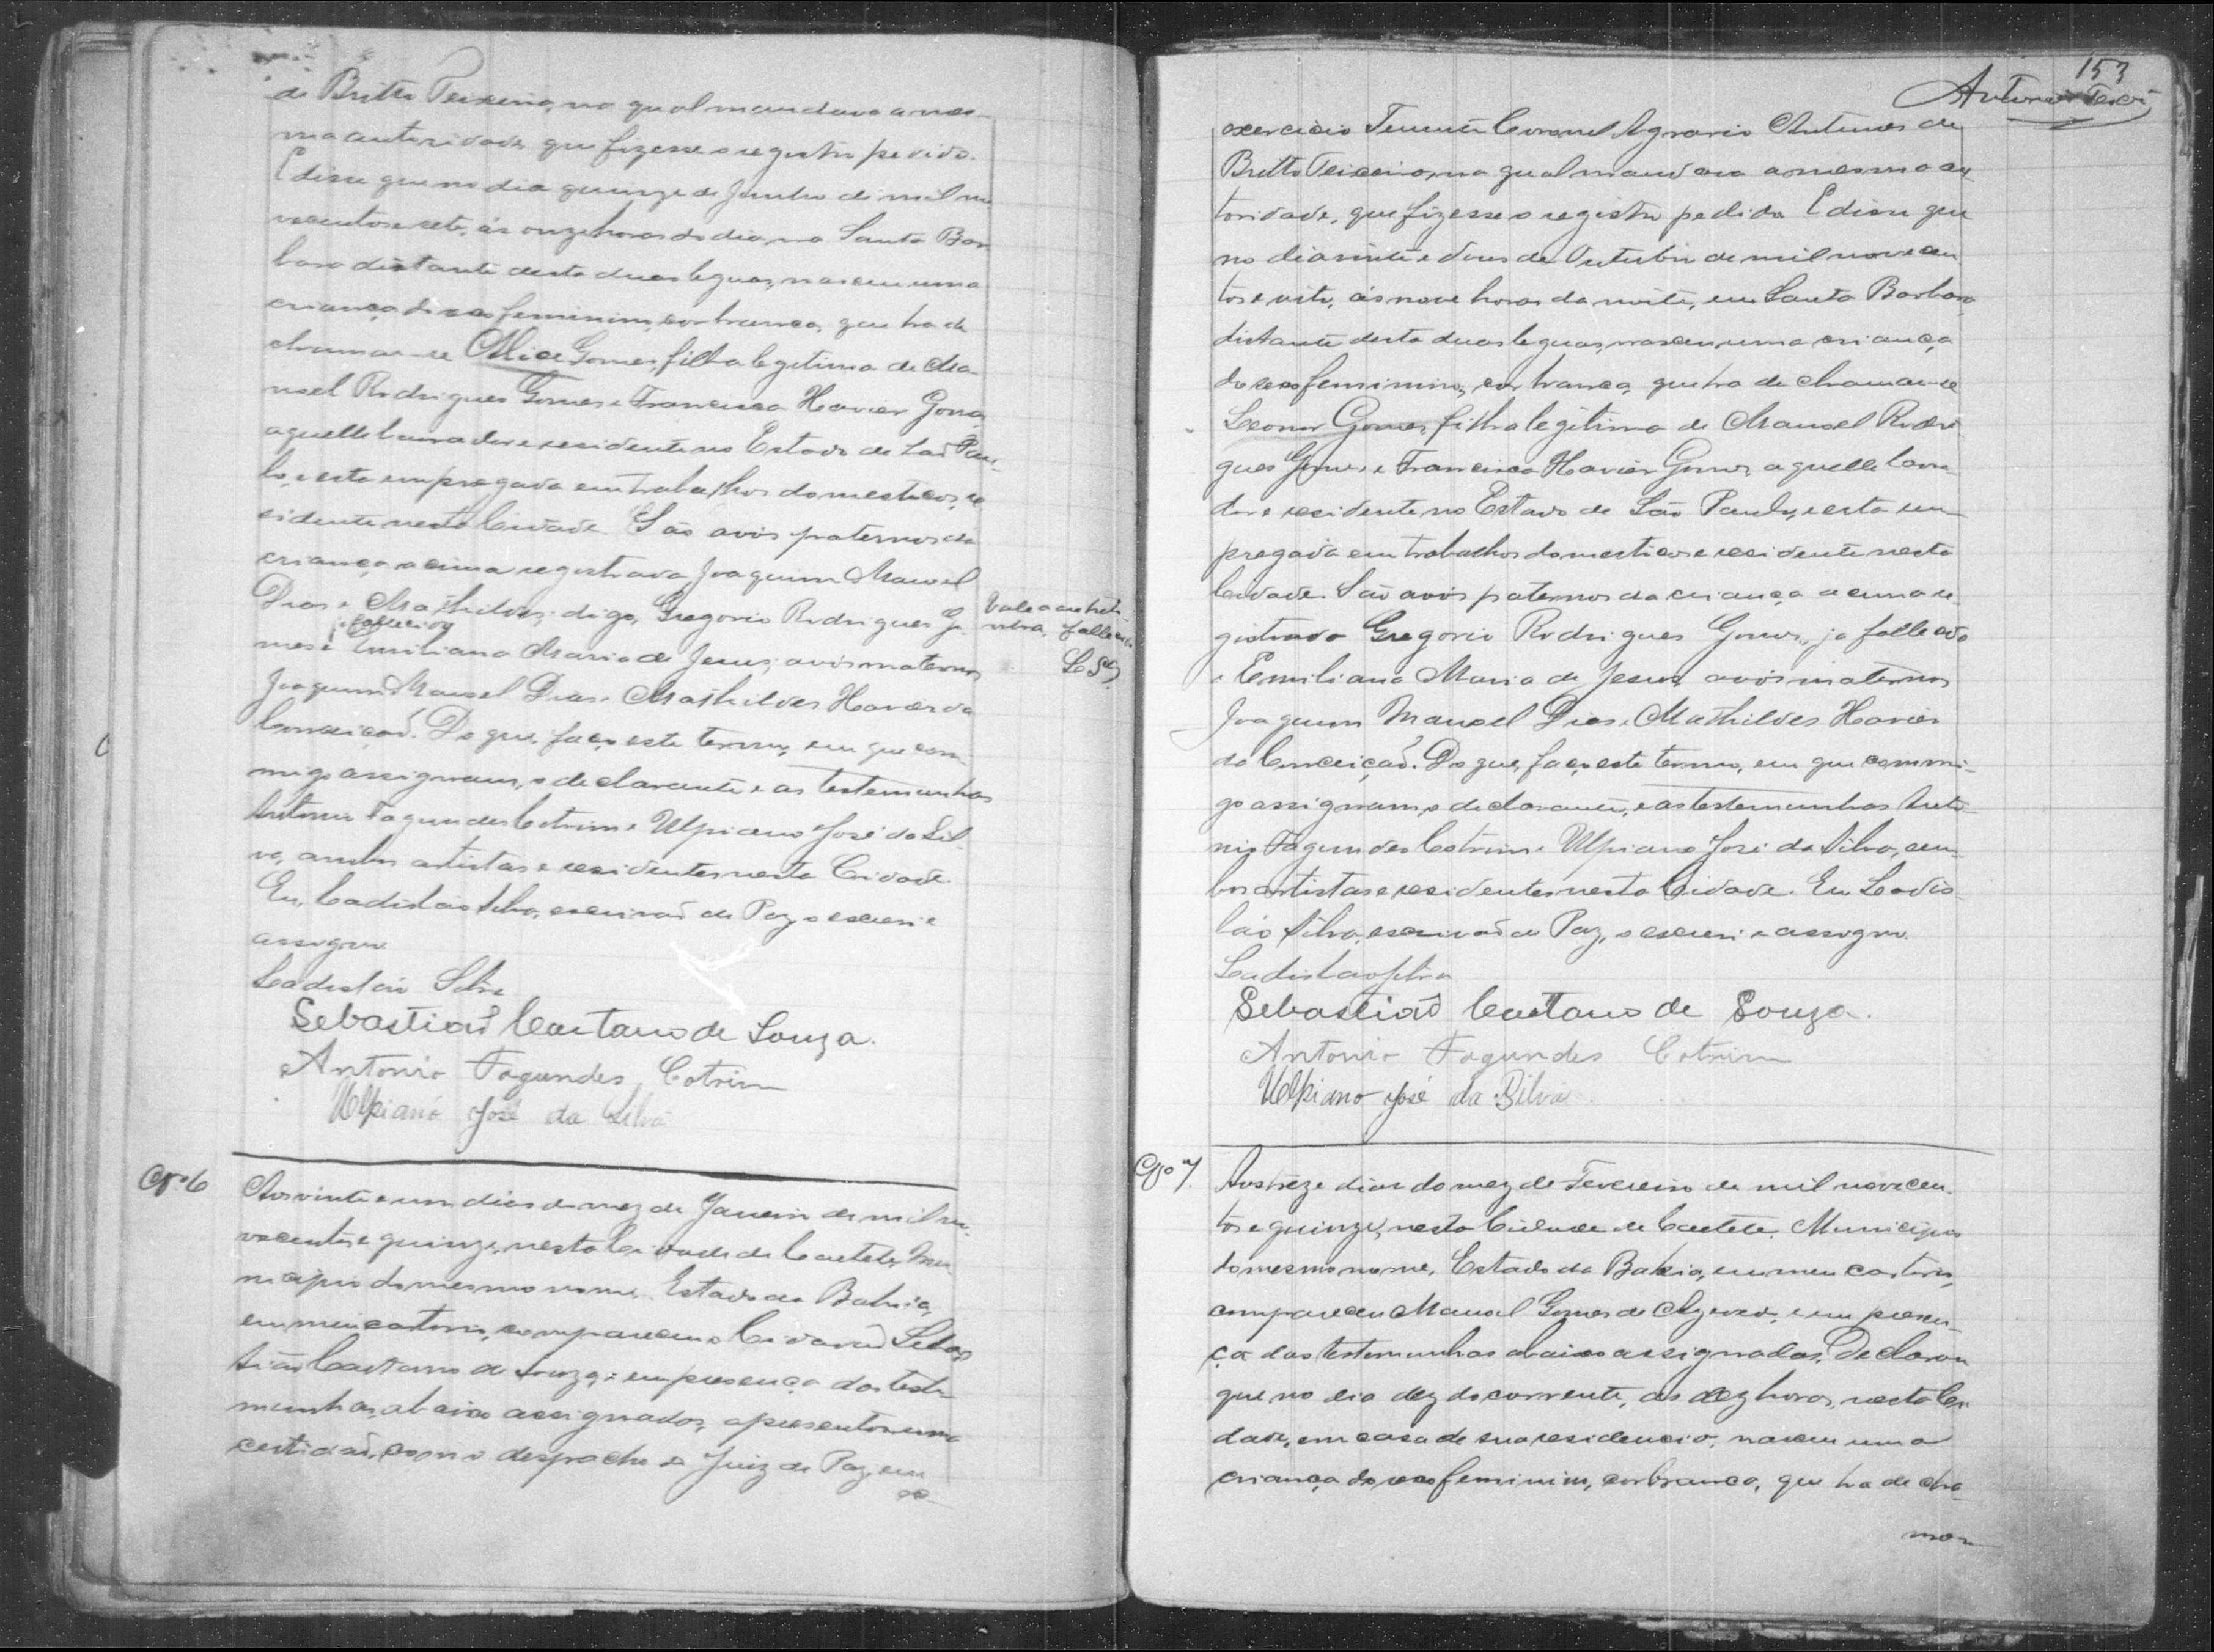 de Britto Teixeira, na qual mandava a mes-
ma autoridade que fizesse o registro pedido.
E disse que no dia quinze de Junho de mil no
vecentos e sete, ás onze horas do dia, na Santa Bar
bara distante desta duas leguas, nasceu uma
criança do sexo feminino, cor branca, que ha de
chamar-se Alice Gomes, filha legitima de Ma-
noel Rodrigues Gomes e Francisca Xavier Gomes,
aquelle lavrador e residente no Estado de São Pau-
lo, e esta empregada em trabalhos domesticos, re
sidente nesta Cidade. São avós paternos da
criança acima registrada Joaquim Manoel
Dias e Mathildes, digo, Gregorio Rodrigues Go
mes e Emiliana Maria de Jesus; avós maternos
fallecidos
Vale a entreli-
nha, fallecidos
LS
Joaquim Manoel Dias e Mathildes Xavier da
Conceição. Do que, faço este termo, em que com-
migo assignam, o declarante e as testemunhas
Antonio Fagundes Cotrim e Ulpiano José da Sil-
va, ambos artistas e residentes nesta Cidade.
Eu, Ladisláo Silva, escrivão de Paz o escrevi e
assigno
Ladisláo Silva
Sebastião Caetano de Souza.
Antonio Fagundes Cotrim
Ulpiano José da Silva
Nº 6
Aos vinte e um dias do mez de Janeiro de mil no-
vecentos e quinze, nesta Cidade de Caeteté, Mu-
nicipio do mesmo nome, Estado da Bahia,
em meu cartorio, compareceu o Cidadão Sebas
tião Caetano de Souza, e em presença das teste-
munhas abaixo assignadas, apresentou uma
certidão, com o despacho do Juiz de Paz em
ex-
153
Antonio
exercicio Tenente Coronel Agrario Antunes de
Britto Teixeira, na qual mandava a mesma au-
toridade, que fizesse o registro pedido. E disse que
no dia vinte e dous de Outubro de mil novecen
tos e oito, ás nove horas da noite, em Santa Barbara,
distante desta duas leguas, nasceu uma criança
do sexo feminino, cor branca, que ha de chamar-se
Leonor Gomes, filha legitima de Manoel Rodri
gues Gomes e Francisca Xavier Gomes, aquelle lavra-
dor e residente no Estado de São Paulo, e esta em
pregada em trabalhos domesticos e residente nesta
Cidade. São avós paternos da criança acima re-
gistrada Gregorio Rodrigues Gomes, já fallecido
e Emiliana Maria de Jesus, avós maternos
Joaquim Manoel Dias e Mathildes Xavier
da Conceição. Do que, faço este termo, em que commi-
go assignam, o declarante, e as testemunhas Anto-
nio Fagundes Cotrim e Ulpiano José da Silva, am-
bos artistas e residentes nesta Cidade. Eu Ladis-
láo Silva, escrivão de Paz, o escrevi e assigno.
Ladisláo Silva
Sebastião Caetano de Souza.
Antonio Fagundes Cotrim
Ulpiano José da Silva
Nº 7.
Aos treze dias do mez de Fevereiro de mil novecen-
tos e quinze, nesta Cidade de Caeteté, Municipio
do mesmo nome, Estado da Bahia, em meu cartorio,
compareceu Manoel Gomes de Azevedo, e em presen-
ça das testemunhas abaixo assignadas, Declarou
que no dia dez do corrente, ás dez horas, nesta Ci
dade, em casa de sua residencia, nasceu uma
criança do sexo feminino, cor branca, que ha de cha-
mar